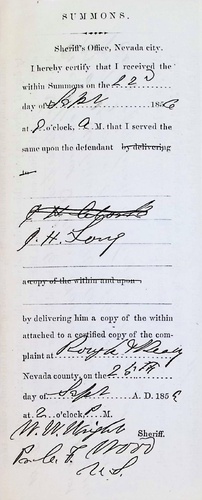 SUMMONS.
Sheriff's Office, Nevada city.
I hereby certify that I received the
within Summons on the 22d
day of Sept 1856
at 9 o'clock, A. M. that I served the
same upon the defendant by delivering
to
J. H.
J. H. Long
a copy of the within and upon
by delivering him a copy of the within
attached to a certified copy of the com-
plaint at Rough & Ready
Nevada county, on the 25th
day of Sept A. D. 1856
at 2 o'clock, P. M.
W. W. Wright Sheriff.
By C. F. Wood
U. S.